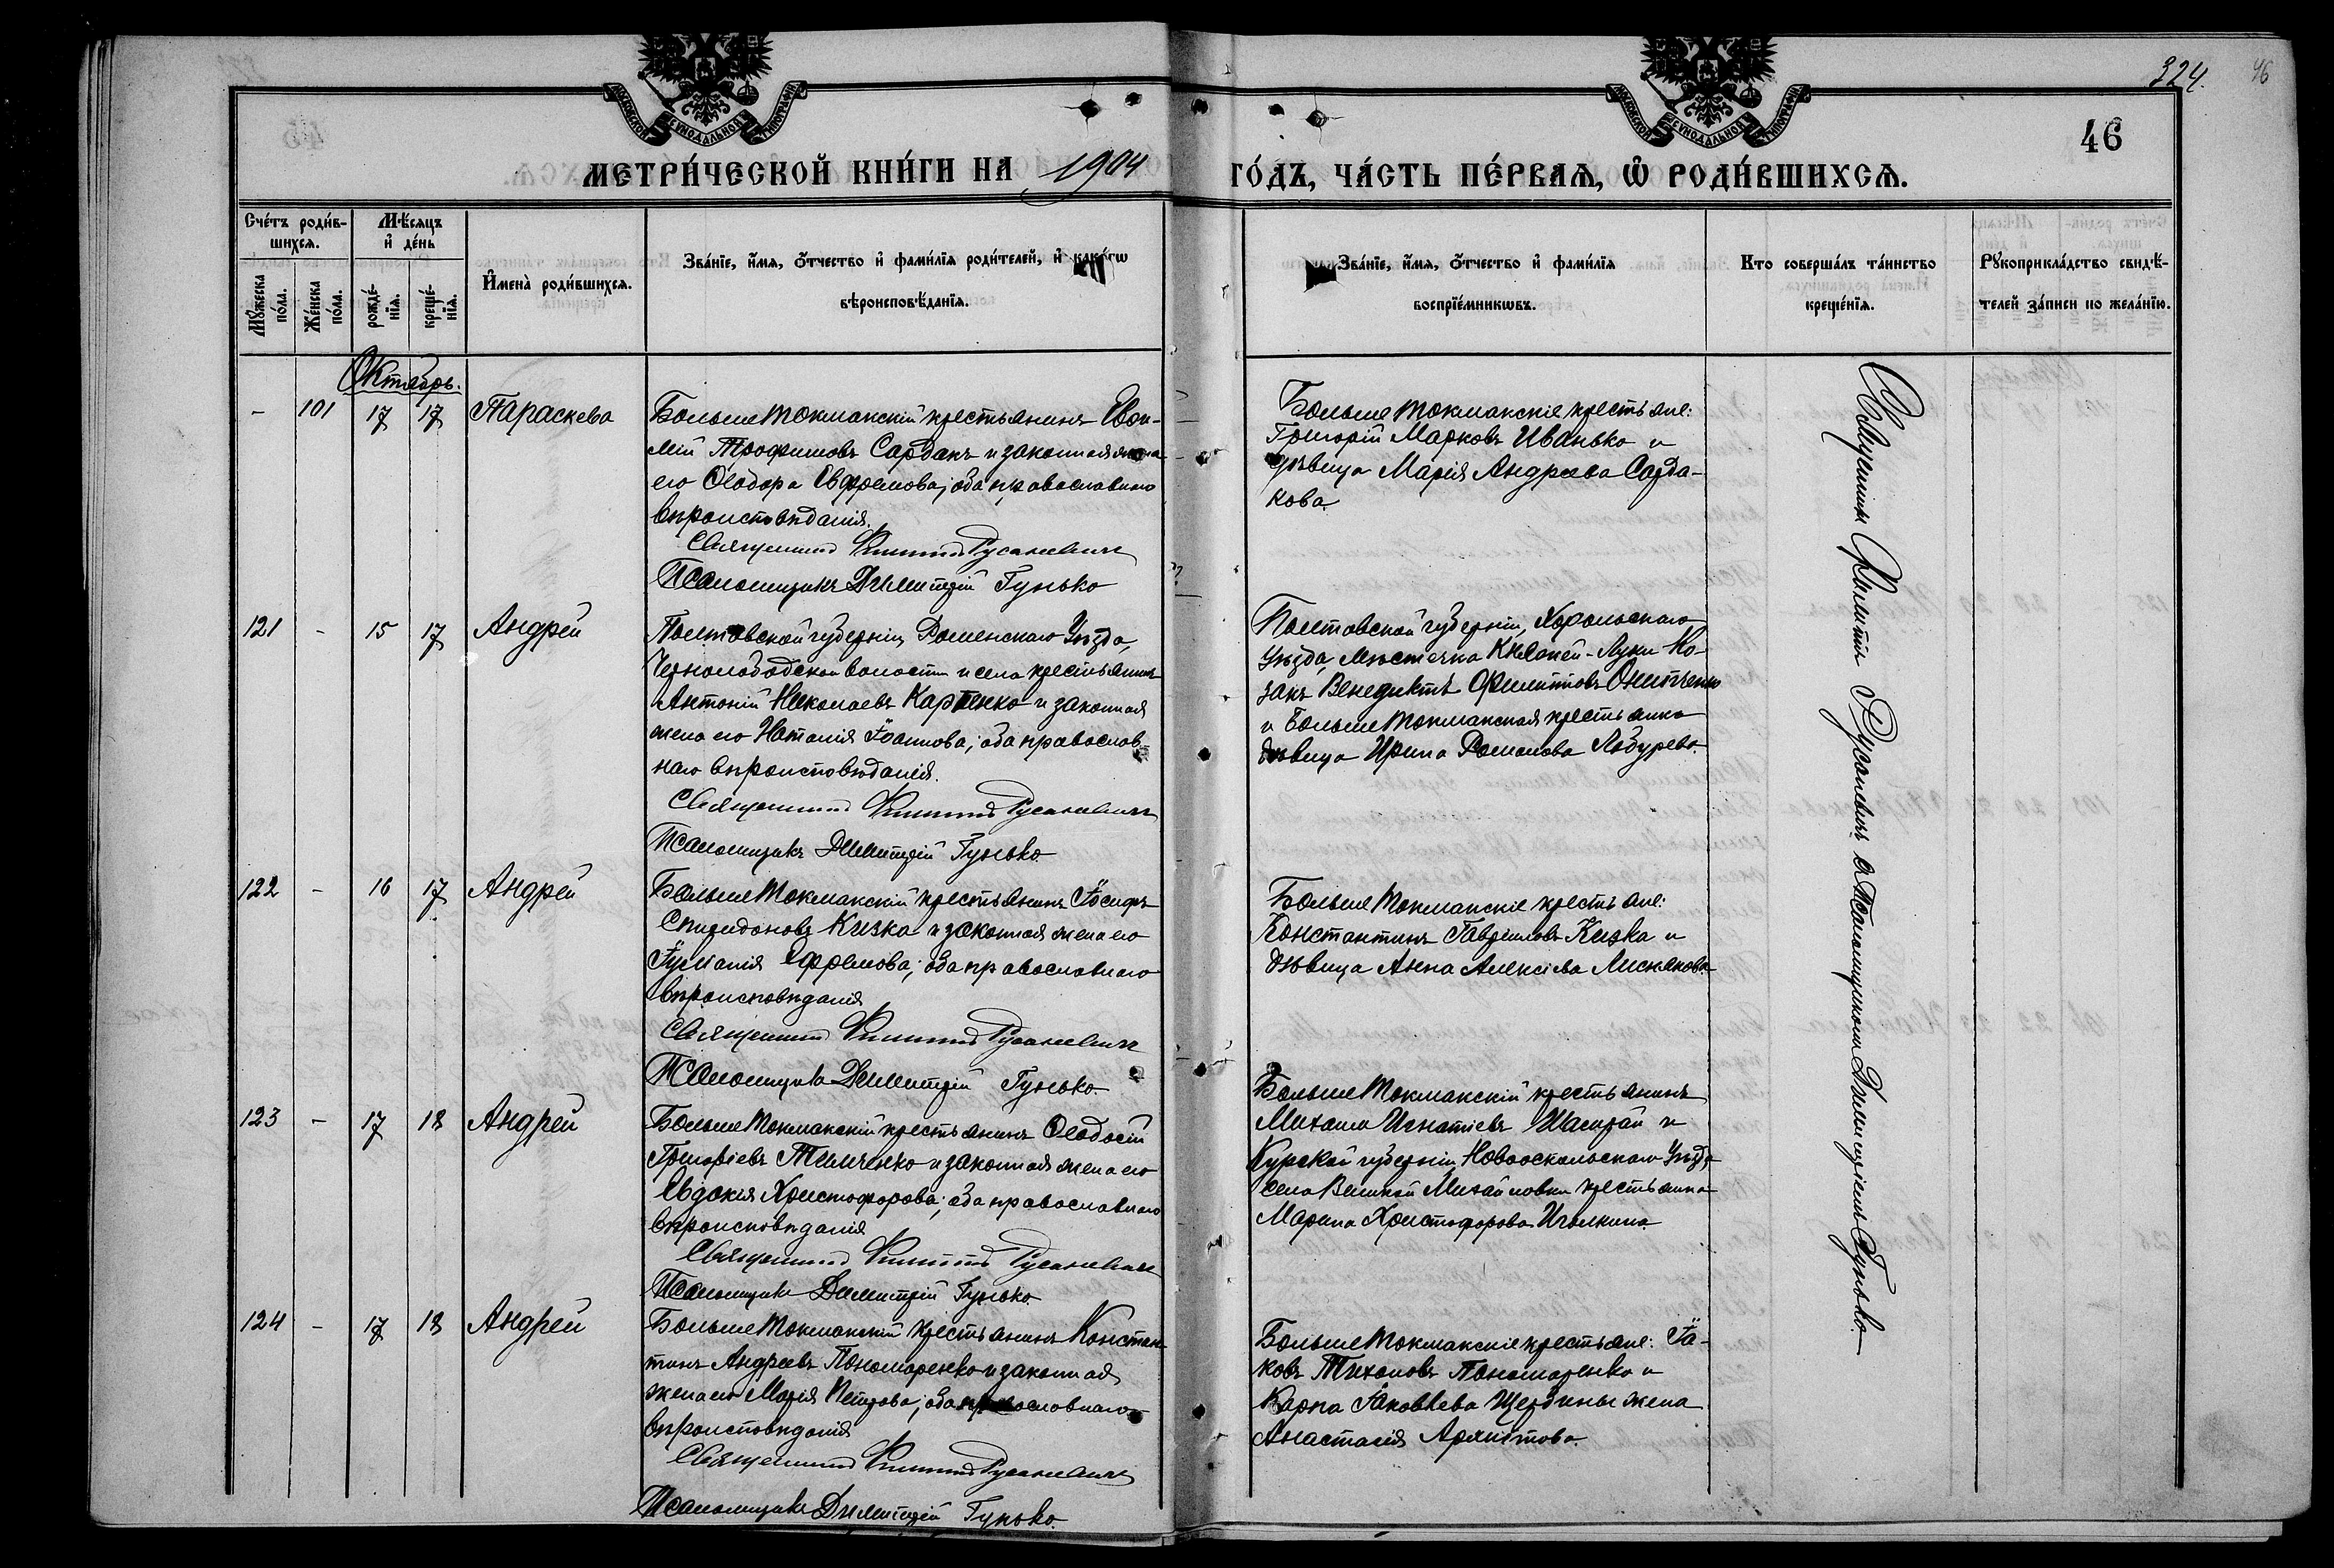 324.
46
46
МОСКОВСКОЙ СѴНОДАЛЬНОЙ ТИПОГРАФІИ
МОСКОВСКОЙ СѴНОДАЛЬНОЙ ТИПОГРАФІИ
МЕТРИ́ЧЕСКОЙ КНИ́ГИ НА 1904 ГО́ДЪ, ЧА́СТЬ ПЕ́РВАѦ, Ѡ҆ РОДИ́ВШИХСѦ.
Сче́тъ роди́в-
шихсѧ.
Мꙋ́жеска по́ла.
Же́нска по́ла.
Мѣ́сѧцъ
и҆ де́нь
рожде́-
нїѧ.
креще́-
нїѧ.
И҆мена̀ роди́вшихсѧ.
Зва́нїе, и҆́мѧ, ѻ҆́тчество и҆ фами́лїѧ роди́телей, и҆ како́гѡ
вѣроисповѣ́данїѧ.
Зва́нїе, и҆́мѧ, ѻ҆́тчество и҆ фами́лїѧ
воспрїе́мникѡвъ.
Кто соверша́лъ та́инство
креще́нїѧ.
Рꙋкоприкла́дство свидѣ́-
телей за́писи по жела́нїю.
Октябрь.
- 101 17 17 Параскева
Больше Токмакскій крестьянинъ Евфи-
мій Трофимовъ Сардакъ и законная жена
его Ѳеодора Евфремова; оба православнаго
вѣроисповѣданія.
Священникъ Филиппъ Русаневичъ
Псаломщикъ Димитрій Гунько
Больше Токмакскіе крестьяне:
Григорій Марковъ Иванько и
дѣвица Марія Андреева Сарда-
кова.
121 - 15 17 Андрей
Полтавской губерніи, Роменскаго Уѣзда,
Чернослободской волости и села крестьянинъ
Антоній Николаевъ Карпенко и законная
жена его Наталія Іоаннова; оба православ-
наго вѣроисповѣданія.
Священникъ Филиппъ Русаневичъ
Псаломщикъ Димитрій Гунько.
Полтавской губерніи, Хорольскаго
Уѣзда, мѣстечка Княжей-Луки ко-
закъ Венедиктъ Филипповъ Онипченко
и Больше Токмакская крестьянка
дѣвица Ирина Романова Лабурева.
122 - 16 17 Андрей
Больше Токмакскій крестьянинъ Іосифъ
Спиридоновъ Кизка и законная жена его
Іуліанія Ефремова; оба православнаго
вѣроисповѣданія
Священникъ Филиппъ Русаневичъ
Псаломщикъ Димитрій Гунько.
Больше Токмакскіе крестьяне:
Константинъ Гавриловъ Кизка и
дѣвица Анна Алексіева Лиснякова.
123 - 17 18 Андрей
Больше Токмакскій крестьянинъ Ѳеодосій
Григоріевъ Тимченко и законная жена его
Евдокія Христофорова; оба православнаго
вѣроисповѣданія
Священникъ Филиппъ Русаневичъ
Псаломщикъ Димитрій Гунько.
Больше Токмакскій крестьянинъ
Михаилъ Игнатіевъ и
Курской губерніи, Новооскольскаго Уѣзда
села Великой Михайловки крестьянка
Марина Христофорова Иголкина.
124 - 17 18 Андрей
Больше Токмакскій крестьянинъ Констан-
тинъ Андреевъ Пономаренко и законная
жена его Марія Петрова; оба православнаго
вѣроисповѣданія
Священникъ Филиппъ Русаневичъ
Псаломщикъ Димитрій Гунько.
Больше Токмакскіе крестьяне: Іа-
ковъ Тихоновъ Пономаренко и
Карпа Іаковлева Щербины жена
Анастасія
Священникъ Филиппъ Русаневичъ съ Псаломщикомъ Димитріемъ Гунько.